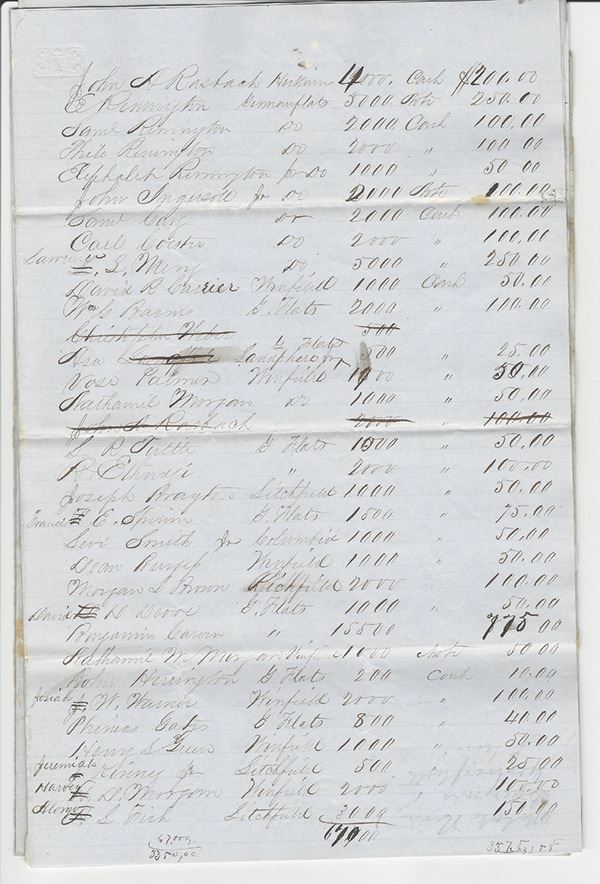 John A Rasbach Herkimer 4000. Cash $200.00
E Remington Germanflats 5000 Note 250.00
Saml Remington Do 2000 Cash 100.00
Philo Remington Do 2000 " 100 00
Eliphalet Remington jr Do 1000 " 50 00
John Ingersoll Jr Do 2000 Note 100.00
Saml Do 2000 Cash 100.00
Carl Do 2000 " 100.00
L. Merry Do 5000 " 250.00
David B Carrier Winfield 1000 Cash 50.00
Wm C Barns G. Flats 2000 " 100.00
Christopher 500
Asa G Flats 500 " 25.00
Vose Palmer Winfield 1000 " 50.00
Nathaniel Morgan Do 1000 " 50.00
John A Rasbach 2000 " 100.00
S R Tuttle G Flats 1000 " 50.00
R. " 2000 " 100.00
Joseph Brayton Litchfield 1000 " 50.00
E. G. Flats 1500 " 75.00
Levi Smith Jr Columbia 1000 " 50.00
Dean Burgess Winfield 1000 " 50.00
Morgan L Brown Litchfield 2000 " 100.00
David D G. Flats 1000 " 50.00
Benjamin Carver " 15500 775 00
Nathaniel M Morgan Winfield 1000 Note 50.00
John Herrington G Flats 200 Cash 10.00
Josiah W. Warner Winfield 2000 " 100.00
Phineas Gates G Flats 800 " 40.00
Henry L Green Winfield 1000 " 50.00
Jeremiah Jr Litchfield 500 " 25.00
Harvey D. Morgan Winfield 2000 " 100.00
L Fish Litchfield 3000 " 150.00
67000
67000